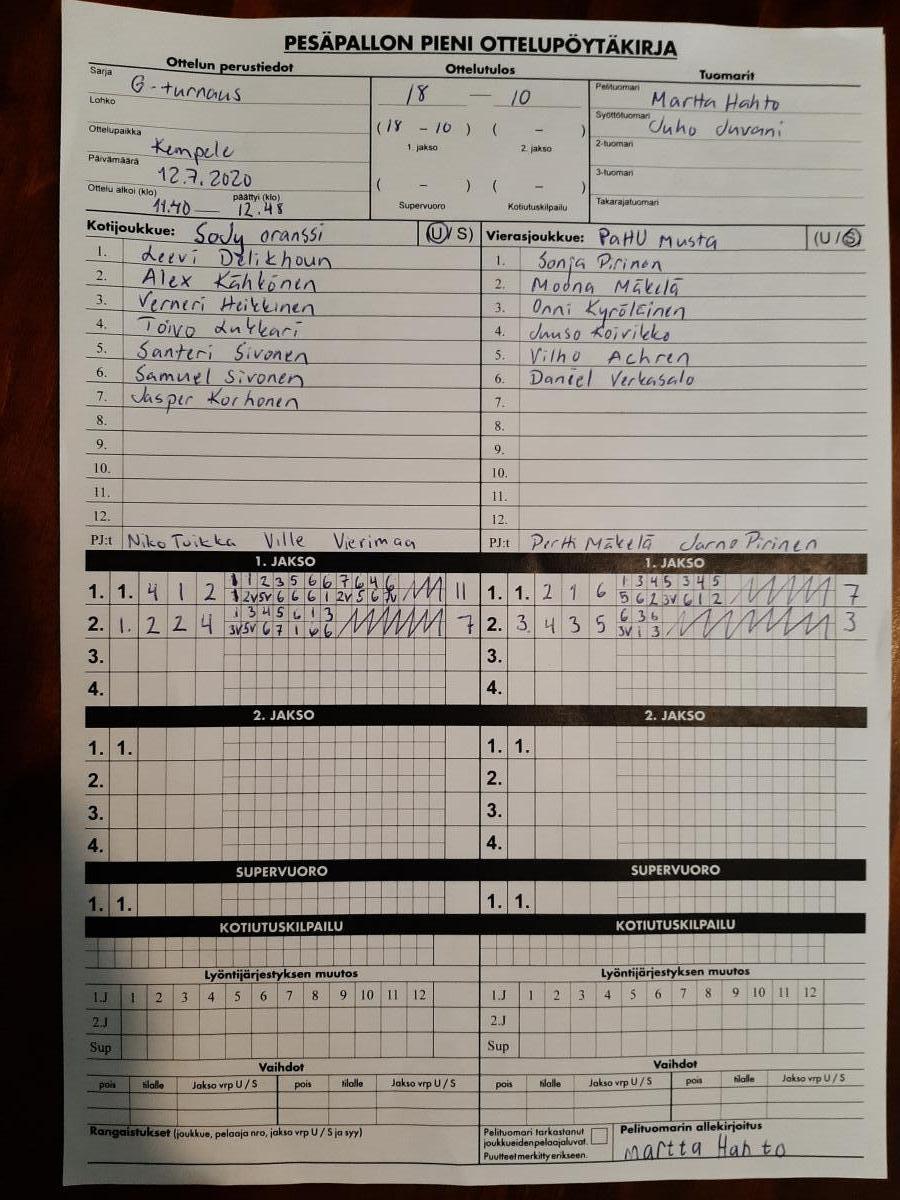 PESÄPALLON PIENI OTTELUPÖYTÄKIRJA
Ottelun perustiedot Ottelutulos Tuomarit
Sarja G-turnaus
Lohko
Ottelupaikka Kempele
Päivämäärä 12.7.2020
Ottelu alkoi (klo) päättyi (klo)
11.40 — 12.48
18 — 10
(18 - 10) ( - )
1. jakso 2. jakso
( - ) ( - )
Supervuoro Kotiutuskilpailu
Pelituomari Martta Hahto
Syöttötuomari Juho Juvani
2-tuomari
3-tuomari
Takarajatuomari
Kotijoukkue: SoJy oranssi (U/S)
1. Leevi Delikhoun
2. Alex Kähkönen
3. Verneri Heikkinen
4. Toivo Lukkari
5. Santeri Sivonen
6. Samuel Sivonen
7. Jasper Korhonen
8.
9.
10.
11.
12.
PJ:t Niko Tuikka Ville Vierimaa
Vierasjoukkue: PaHU Musta (U/S)
1. Sonja Pirinen
2. Moona Mäkelä
3. Onni Kyröläinen
4. Juuso Koivikko
5. Vilho Achren
6. Daniel Verkasalo
7.
8.
9.
10.
11.
12.
PJ:t Pertti Mäkelä Jarno Pirinen
1. JAKSO 1. JAKSO
1. 1. 4 1 2 11
2. 1. 2 2 4 7
3.
4.
1. 1. 2 1 6 7
2. 3. 4 3 5 3
3.
4.
2. JAKSO 2. JAKSO
1. 1. 1. 1.
2. 2.
3. 3.
4. 4.
SUPERVUORO SUPERVUORO
1. 1. 1. 1.
KOTIUTUSKILPAILU KOTIUTUSKILPAILU
Lyöntijärjestyksen muutos Lyöntijärjestyksen muutos
1.J 1 2 3 4 5 6 7 8 9 10 11 12 1.J 1 2 3 4 5 6 7 8 9 10 11 12
2.J 2.J
Sup Sup
Vaihdot Vaihdot
pois tilalle Jakso vrp U / S pois tilalle Jakso vrp U / S pois tilalle Jakso vrp U / S pois tilalle Jakso vrp U / S
Rangaistukset (joukkue, pelaaja nro, jakso vrp U / S ja syy)
Pelituomari tarkastanut
joukkueiden pelaajaluvat.
Puutteet merkitty erikseen.
Pelituomarin allekirjoitus
Martta Hahto